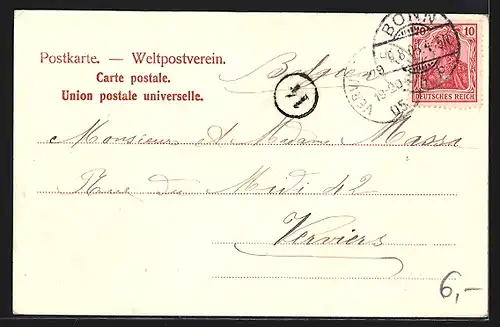 Postkarte. — Weltpostverein.
Carte postale.
Union postale universelle.
BONN
10
DEUTSCHES REICH
VERV
05
14
Belgien
Monsieur & Madame Massa
Rue du Midi 42
Verviers
6,-